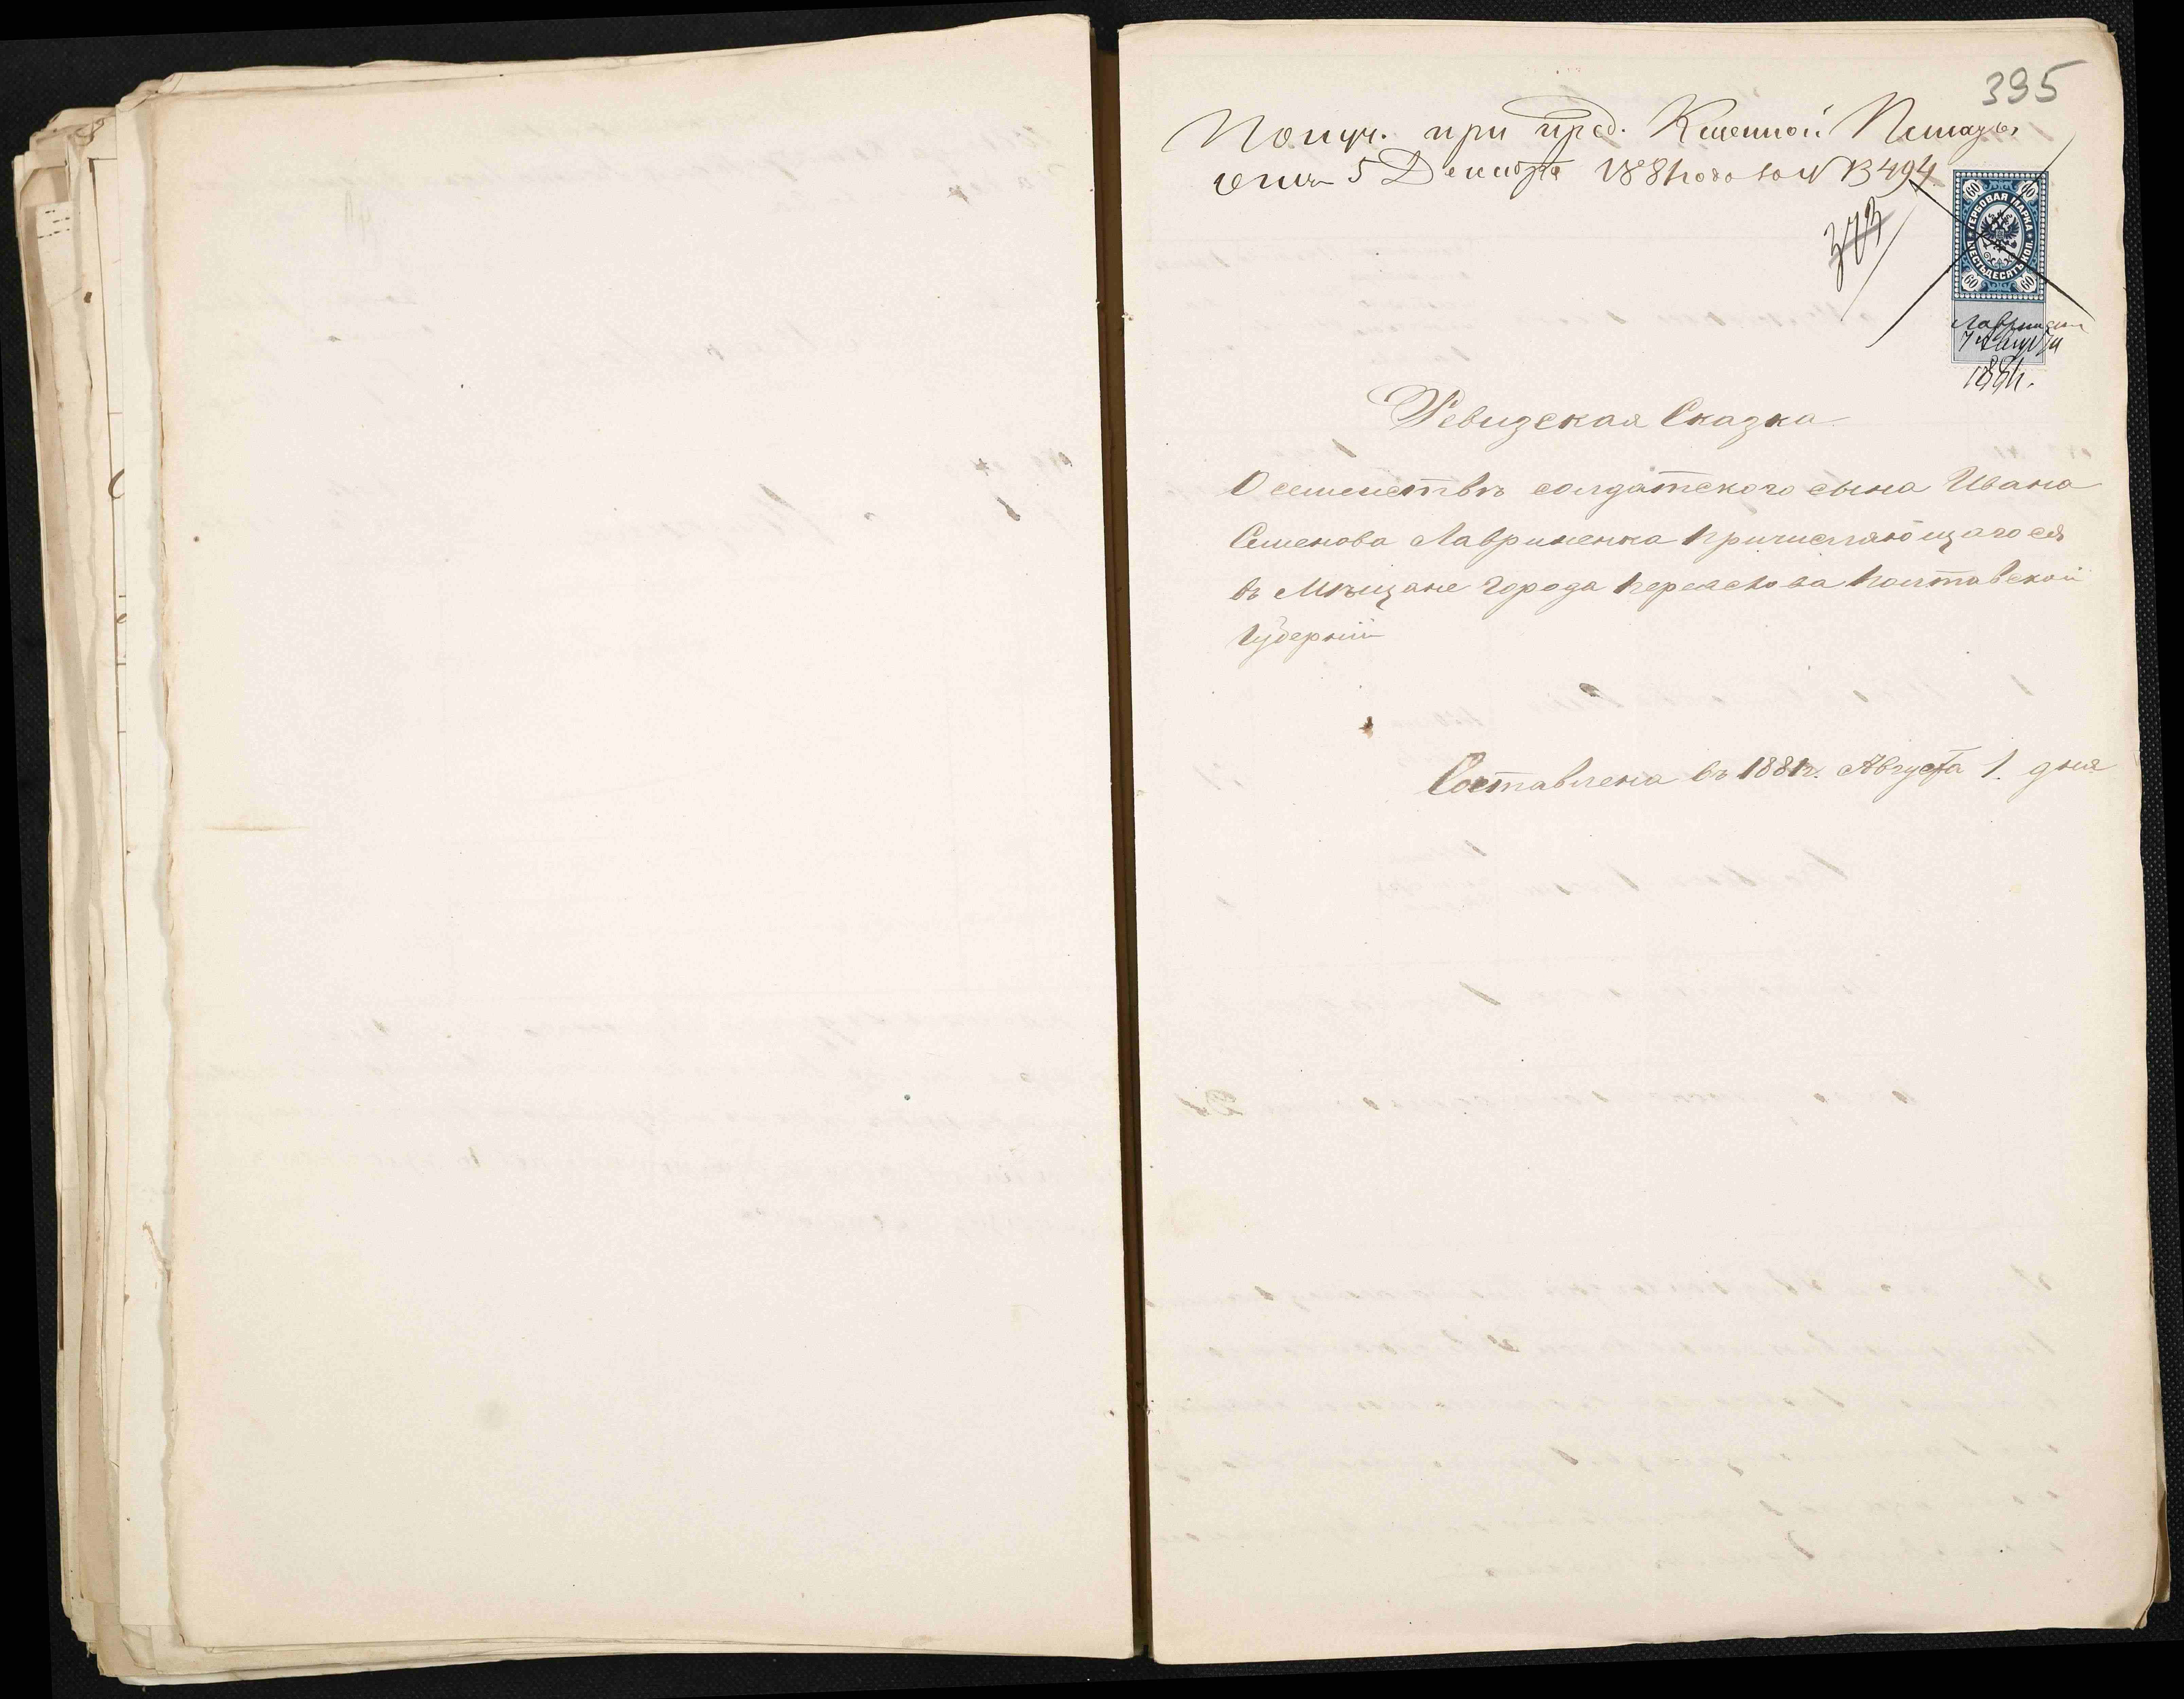 395
Получ. при пред. Казенной Палаты
отъ 5 Декабря 1881 года за N 13494
373
60 60
ГЕРБОВАЯ МАРКА
ШЕСТЬДЕСЯТЪ КОП.
60 60
7 Августа
1881 г.
Ревизская Сказка
О семействѣ солдатского сына Ивана
Семенова Лавриненка причисляющагося
въ Мѣщане города Переяслова Полтавской
Губерніи
Составлена въ 1881 г. Августа 1 дня